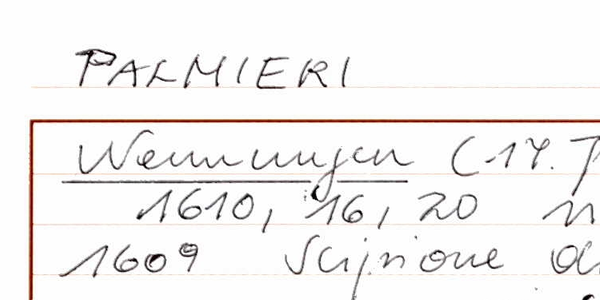 PALMIERI
Nennungen (17.
1610, 16, 20
1609 Scipione